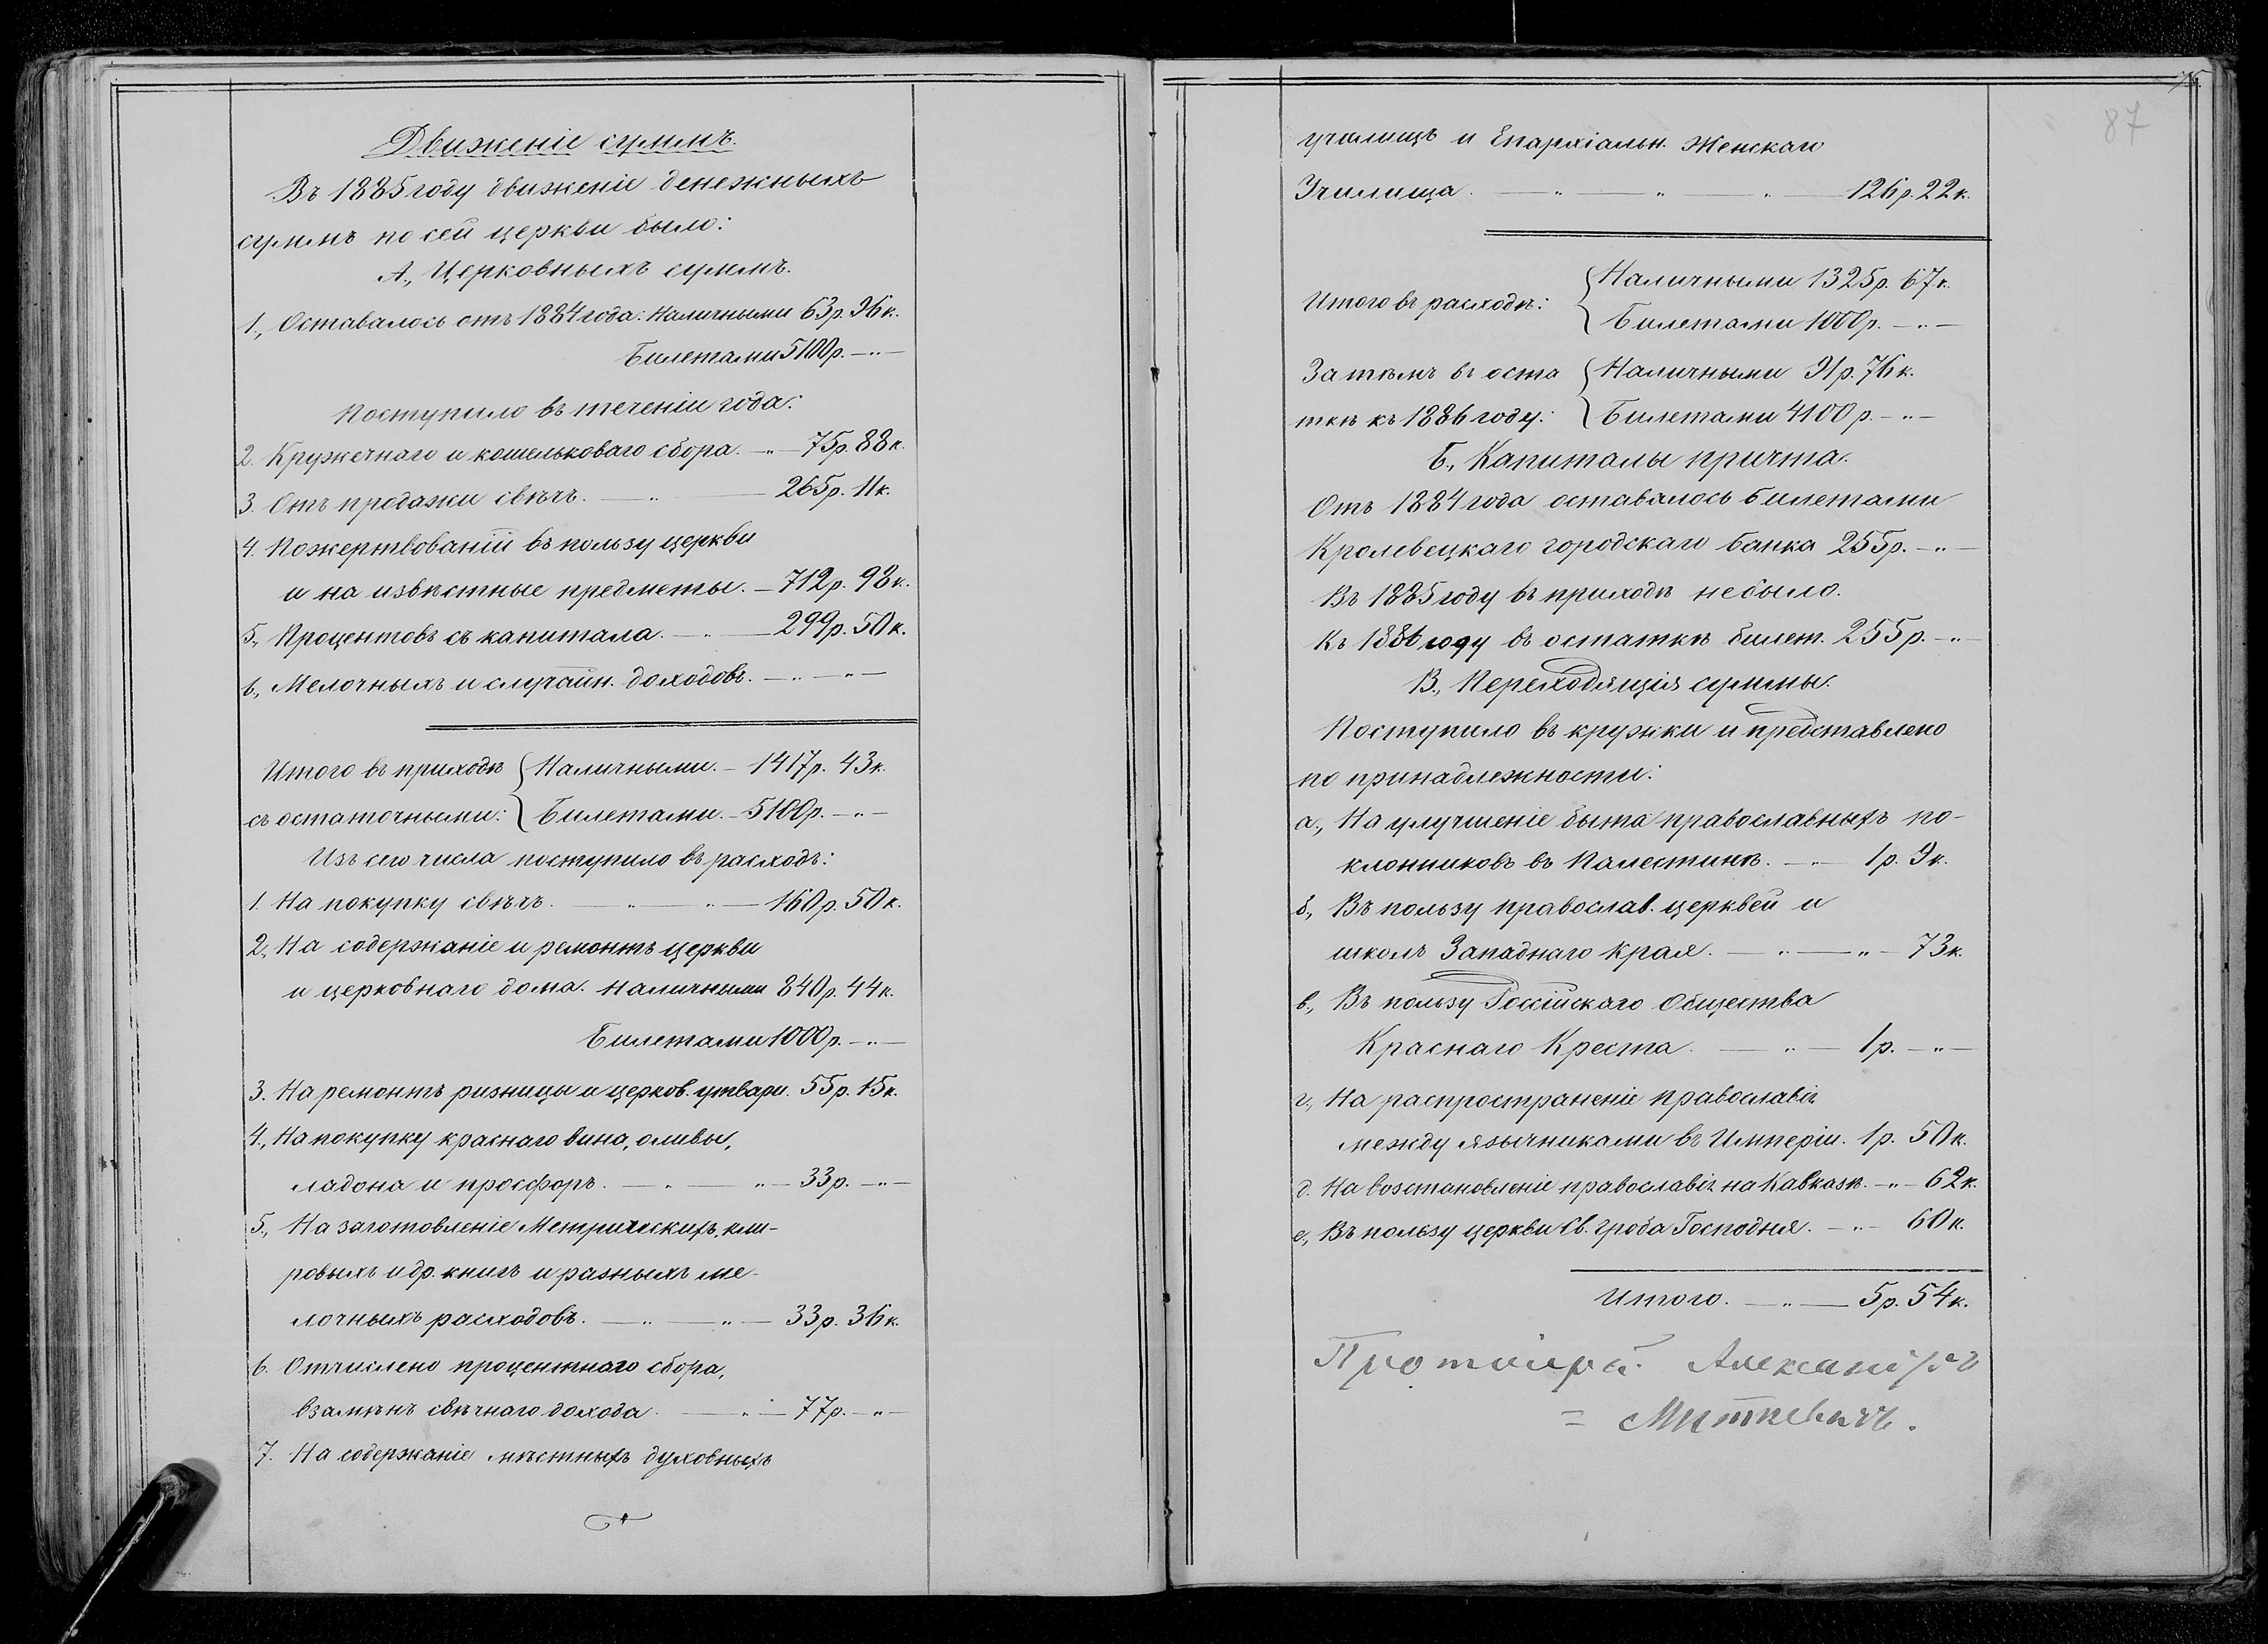 Движеніе суммъ.
Въ 1885 году движеніе денежныхъ
суммъ по сей церкви было:
А., Церковныхъ суммъ.
1., Оставалось отъ 1884 года: Наличными 63р. 96к.
Билетами 5100р. — „ —
Поступило въ теченіи года:
2. Кружечнаго и кошельковаго сбора. — „ — 75р. 88к.
3. Отъ продажи свѣчъ. — „ — 265р. 11к.
4. Пожертвованій въ пользу церкви
и на извѣстные предметы. — 712р. 98к.
5., Процентовъ съ капитала. — „ — 299р. 50к.
6., Мелочныхъ и случайн. доходовъ. — „ — „ —
Итого въ приходѣ { Наличными. — 1417р. 43к.
съ остаточными: { Билетами. — 5100р. — „ —
Изъ сего числа поступило въ расходъ:
1. На покупку свѣчъ. — „ — „ — 160р. 50к.
2., На содержаніе и ремонтъ церкви
и церковнаго дома. Наличными 840р. 44к.
Билетами 1000р. — „ —
3. На ремонтъ ризницы и церков. утвари. 55р. 15к.
4., На покупку краснаго вина, оливы,
ладона и просфоръ. — „ — „ — 33р. — „ —
5., На заготовленіе Метрическихъ, кли-
ровыхъ и др. книгъ и разныхъ ме-
лочныхъ расходовъ. — „ — „ — 33р. 36к.
6. Отчислено процентнаго сбора,
взамѣнъ свѣчнаго дохода. — „ — 77р. — „ —
7. На содержаніе мѣстныхъ духовныхъ
75.
87
училищъ и Епархіальн. Женскаго
Училища. — „ — „ — „ — 126р. 22к.
Итого въ расходѣ: { Наличными 1325р. 67к.
{ Билетами 1000р. — „ —
Затѣмъ въ оста { Наличными 91р. 76к.
ткѣ къ 1886 году: { Билетами 4100р. — „ —
Б., Капиталы причта.
Отъ 1884 года оставалось билетами
Кролевецкаго городскаго банка 255р. — „ —
Въ 1885 году въ приходѣ небыло.
Къ 1886 году въ остаткѣ билет. 255р. — „
В., Переходящія суммы.
Поступило въ кружки и представлено
по принадлежности:
а., На улучшеніе быта православныхъ по-
клонниковъ въ Палестинѣ. — „ — 1р. 9к.
б., Въ пользу православ. церквей и
школъ Западнаго края. — „ — „ — 73к.
в., Въ пользу Россійскаго Общества
Краснаго Креста. — „ — 1р. — „ —
г., На распространеніе православія
между язычниками въ Имперіи. 1р. 50к.
д. На возстановленіе православія на Кавказѣ. — „ — 62к.
е., Въ пользу церкви Св. гроба Господня. — „ — 60к.
Итого. — „ — 5р. 54к.
Протоіерей Александръ
= Миткевичъ.